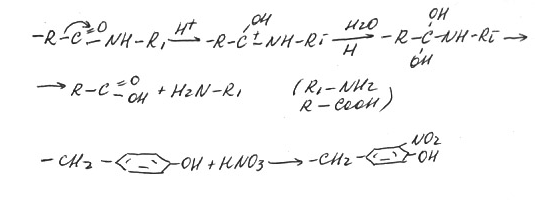 -R-C=O-NH-R, H+ → -R-C+(OH)-NH-Ri H2O/H → -R-C(OH)(OH)-NH-Ri →
→ R-C=O-OH + H2N-R, (R,-NH2
R-COOH)
-CH2-⌬-OH + HNO3 → -CH2-⌬-NO2 -OH